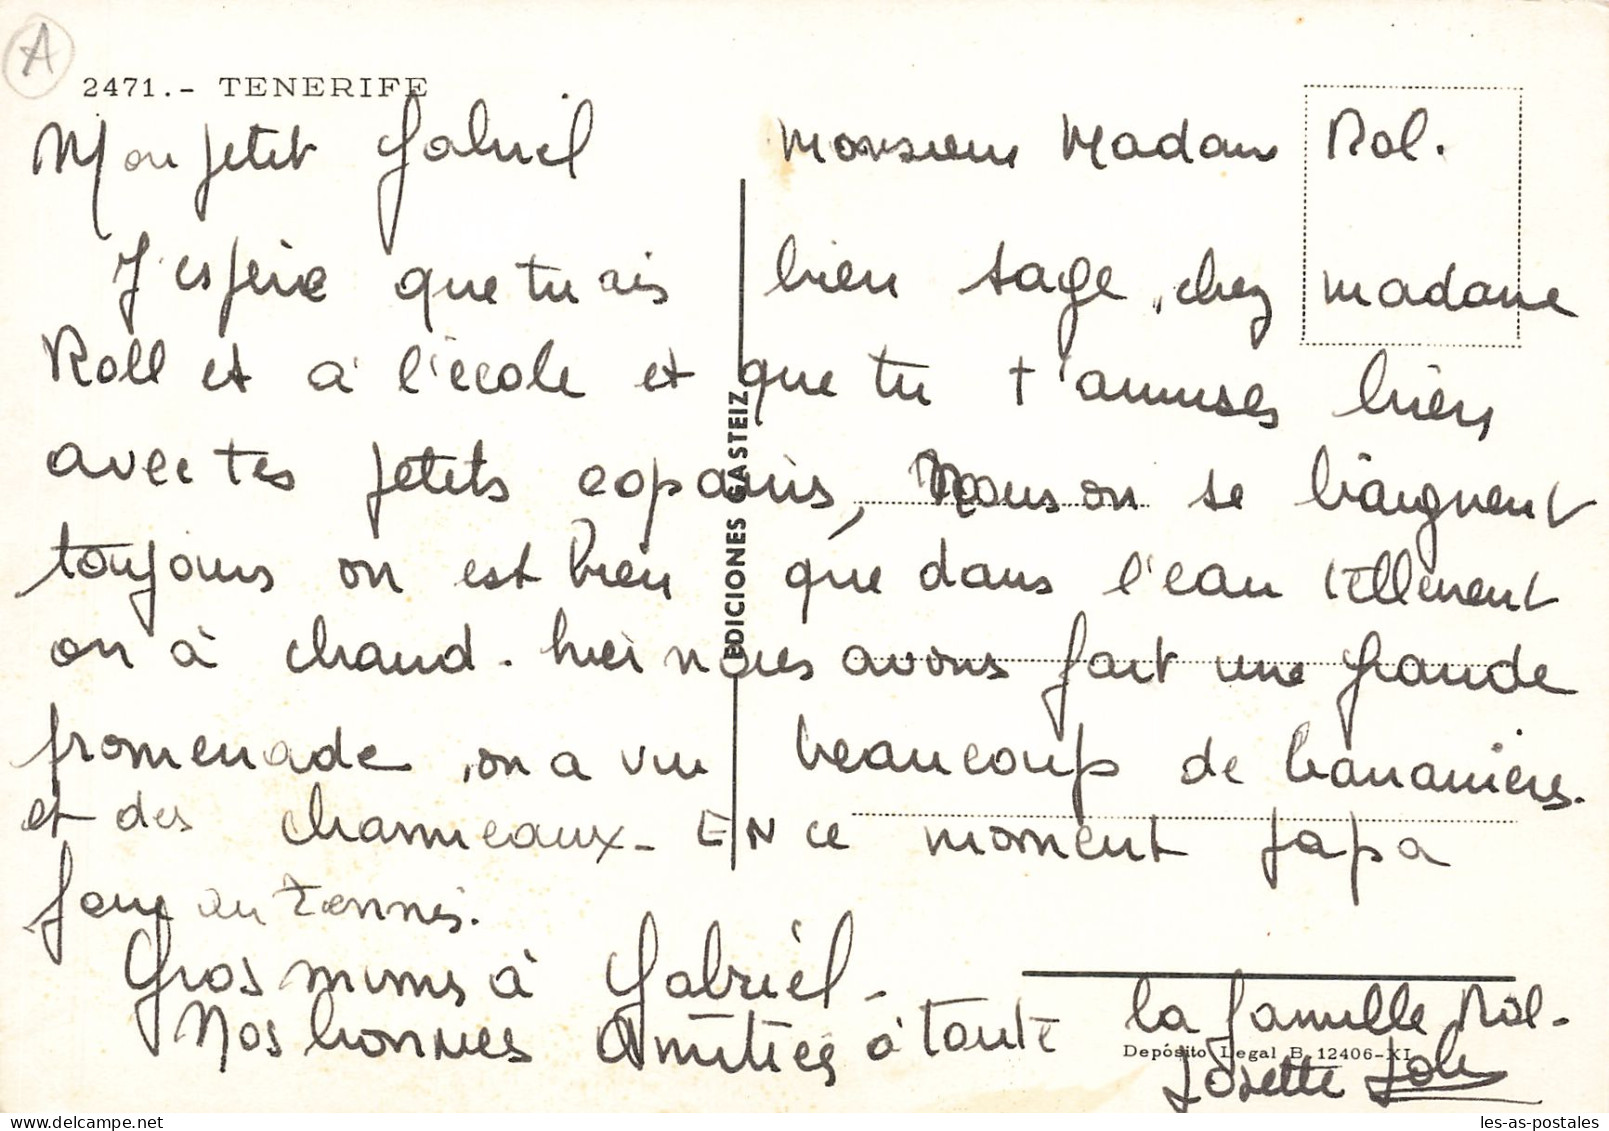 A
2471.- TENERIFE
Mon petit Gabriel Monsieur Madame Rol.
J'espère que tu ais bien sage, chez madame
Roll et à l'école et que tu t'amuses bien
avec tes petits copains, Nous on se baignent
toujours on est bien que dans l'eau tellement
on à chaud - hier nous avons fait une grande
promenade, on a vu beaucoup de bananiers.
et des chameaux - EN ce moment papa
joue au tennis.
Gros mimis à Gabriel -
Nos bonnes Amitiés à toute la famille Rol.
EDICIONES GASTEIZ
Depósito Legal B. 12406-XI
Josette
les-as-postales